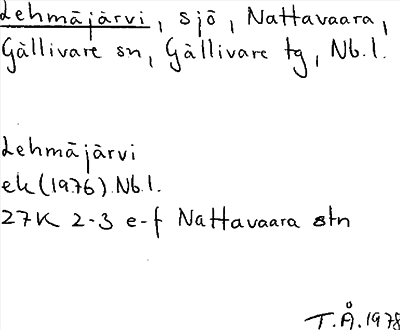 Lehmäjärvi, sjö, Nattavaara,
Gällivare sn, Gällivare tg, Nb.l.
Lehmäjärvi
ek(1976) Nb.l.
27K 2-3 e-f Nattavaara stn
T.Å.1978